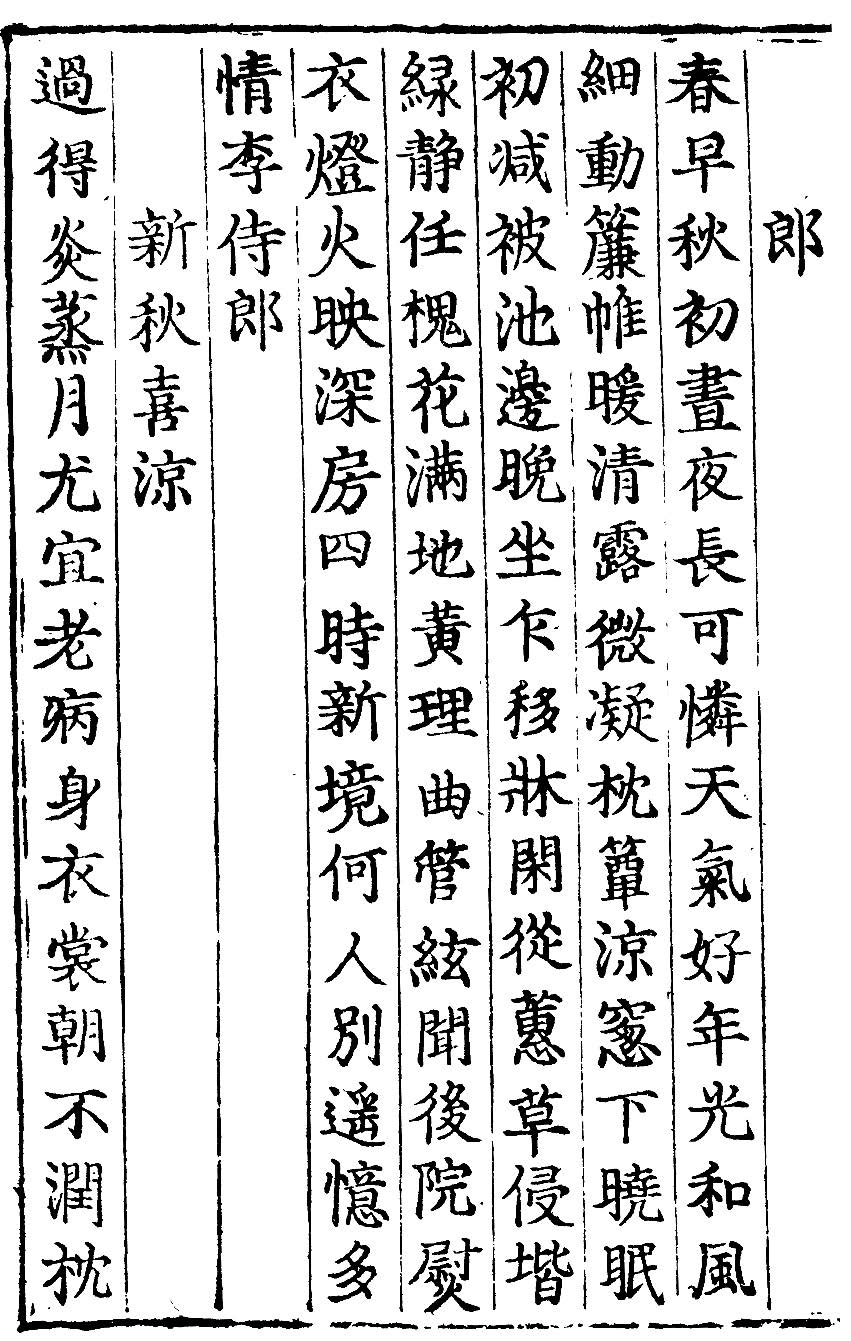 郎
春早秋初晝夜長可憐天氣好年光和風
細動簾帷暖清露微凝枕簟涼窻下曉眠
初减被池邊晚坐乍移牀閑從蕙草侵堦
緑静任槐花满地黄理曲管絃聞後院熨
衣燈火映深房四時新境何人别遥憶多
情李侍郎
新秋喜涼
過得炎蒸月尤宜老病身衣裳朝不潤枕